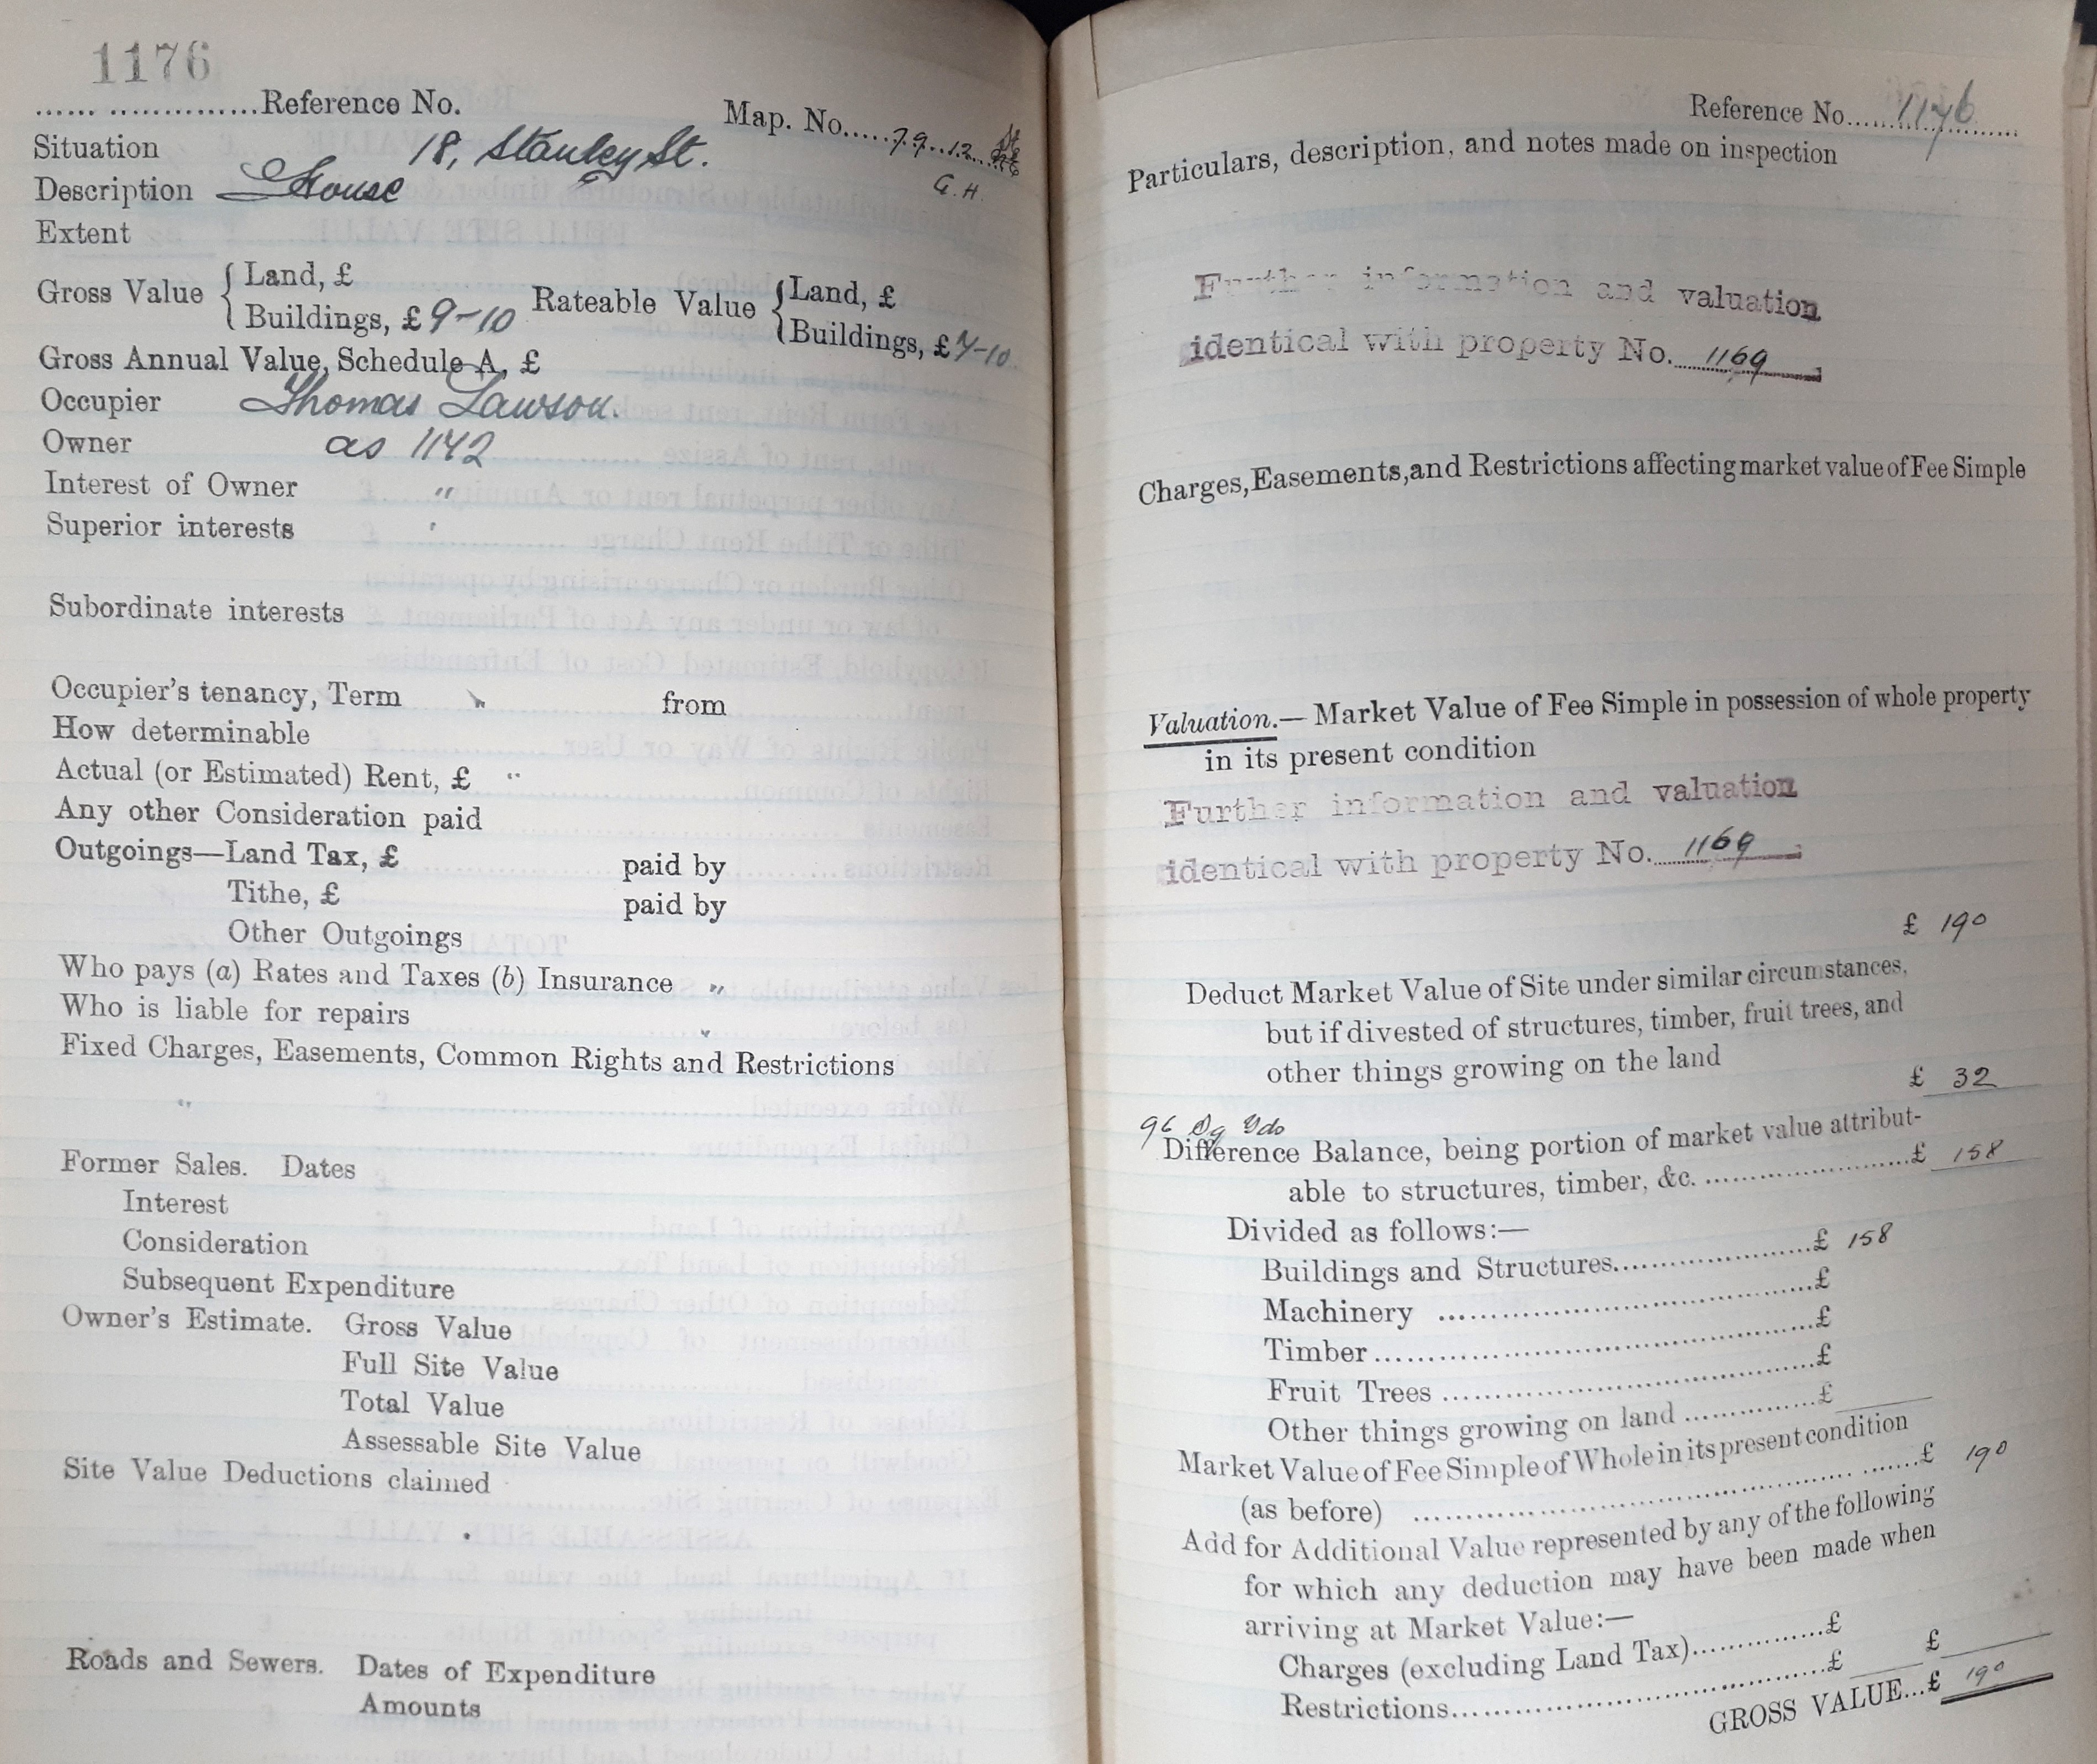 1176
...... ...............Reference No.
Map. No.....79..12..
G. H.
Situation 18, Stanley St.
Description House
Extent
Gross Value { Land, £
Buildings, £ 9-10
Rateable Value { Land, £
Buildings, £ 7-10
Gross Annual Value, Schedule A, £
Occupier Thomas Lawson.
Owner as 1142
Interest of Owner "
Superior interests '
Subordinate interests
Occupier's tenancy, Term from
How determinable
Actual (or Estimated) Rent, £ "
Any other Consideration paid
Outgoings—Land Tax, £ paid by
Tithe, £ paid by
Other Outgoings
Who pays (a) Rates and Taxes (b) Insurance "
Who is liable for repairs "
Fixed Charges, Easements, Common Rights and Restrictions
"
Former Sales. Dates
Interest
Consideration
Subsequent Expenditure
Owner's Estimate. Gross Value
Full Site Value
Total Value
Assessable Site Value
Site Value Deductions claimed
Roads and Sewers. Dates of Expenditure
Amounts
Reference No. 1176
Particulars, description, and notes made on inspection
Further information and valuation
identical with property No. 1169
Charges, Easements, and Restrictions affecting market value of Fee Simple
Valuation.— Market Value of Fee Simple in possession of whole property
in its present condition
Further information and valuation
identical with property No. 1169
£ 190
Deduct Market Value of Site under similar circumstances,
but if divested of structures, timber, fruit trees, and
other things growing on the land
£ 32
96 Sq Yds
Difference Balance, being portion of market value attribut-
able to structures, timber, &c. ........................£ 158
Divided as follows:—
Buildings and Structures.......................£ 158
Machinery .............................................£
Timber....................................................£
Fruit Trees .............................................£
Other things growing on land ...............£
Market Value of Fee Simple of Whole in its present condition
(as before) ..................................................... .......£ 190
Add for Additional Value represented by any of the following
for which any deduction may have been made when
arriving at Market Value:—
Charges (excluding Land Tax)...............£
Restrictions............................................£ £
GROSS VALUE...£ 190